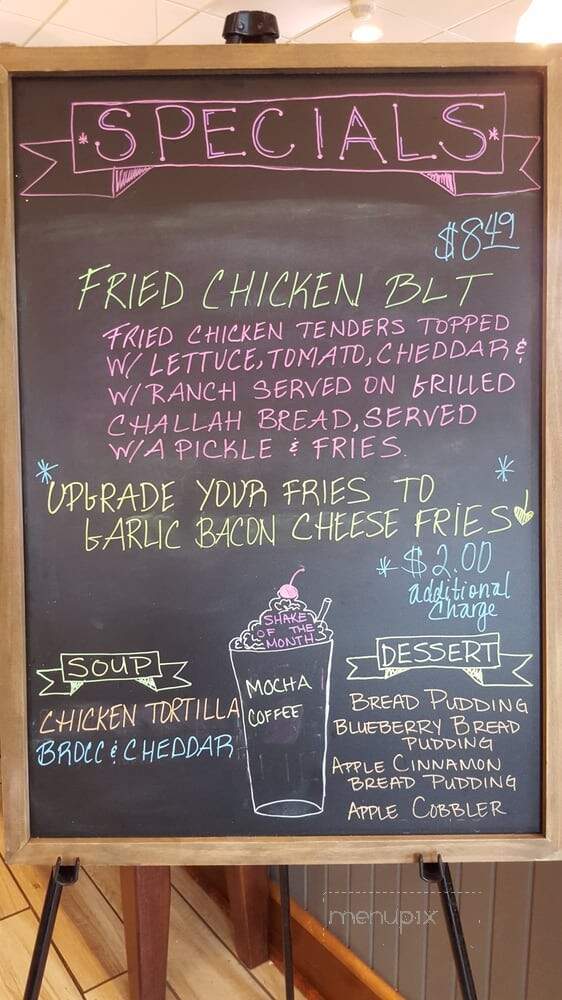 *SPECIALS*
$8.49
FRIED CHICKEN BLT
FRIED CHICKEN TENDERS TOPPED
W/ LETTUCE, TOMATO, CHEDDAR &
W/ RANCH SERVED ON GRILLED
CHALLAH BREAD, SERVED
W/ A PICKLE & FRIES.
* *
UPGRADE YOUR FRIES TO
GARLIC BACON CHEESE FRIES
* $2.00
additional
charge
SHAKE
OF THE
MONTH
MOCHA
COFFEE
SOUP
CHICKEN TORTILLA
BROCC & CHEDDAR
DESSERT
BREAD PUDDING
BLUEBERRY BREAD
PUDDING
APPLE CINNAMON
BREAD PUDDING
APPLE COBBLER
menupix